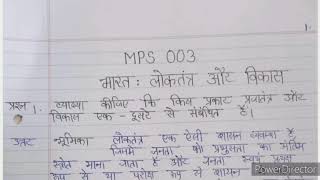 MPS 003
भारत: लोकतंत्र और विकास
प्रश्न 1. व्याख्या कीजिए कि किस प्रकार प्रजातंत्र और
विकास एक-दूसरे से संबंधित है।
उत्तर भूमिका लोकतंत्र एक ऐसी शासन व्यवस्था है
जिसमें जनता को प्रभुसत्ता का अंतिम
स्रोत माना जाता है और जनता स्वयं प्रत्यक्ष
रूप से या परोक्ष रूप से शासन
PowerDirector